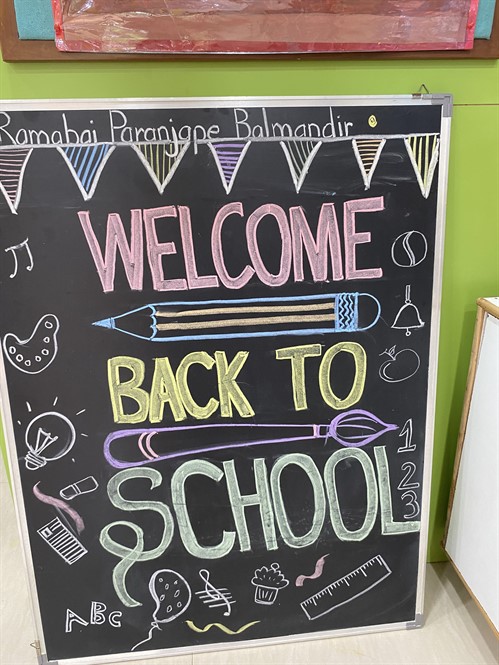 Ramabai Paranjape Balmandir
WELCOME
BACK TO
SCHOOL
1
2
3
ABC